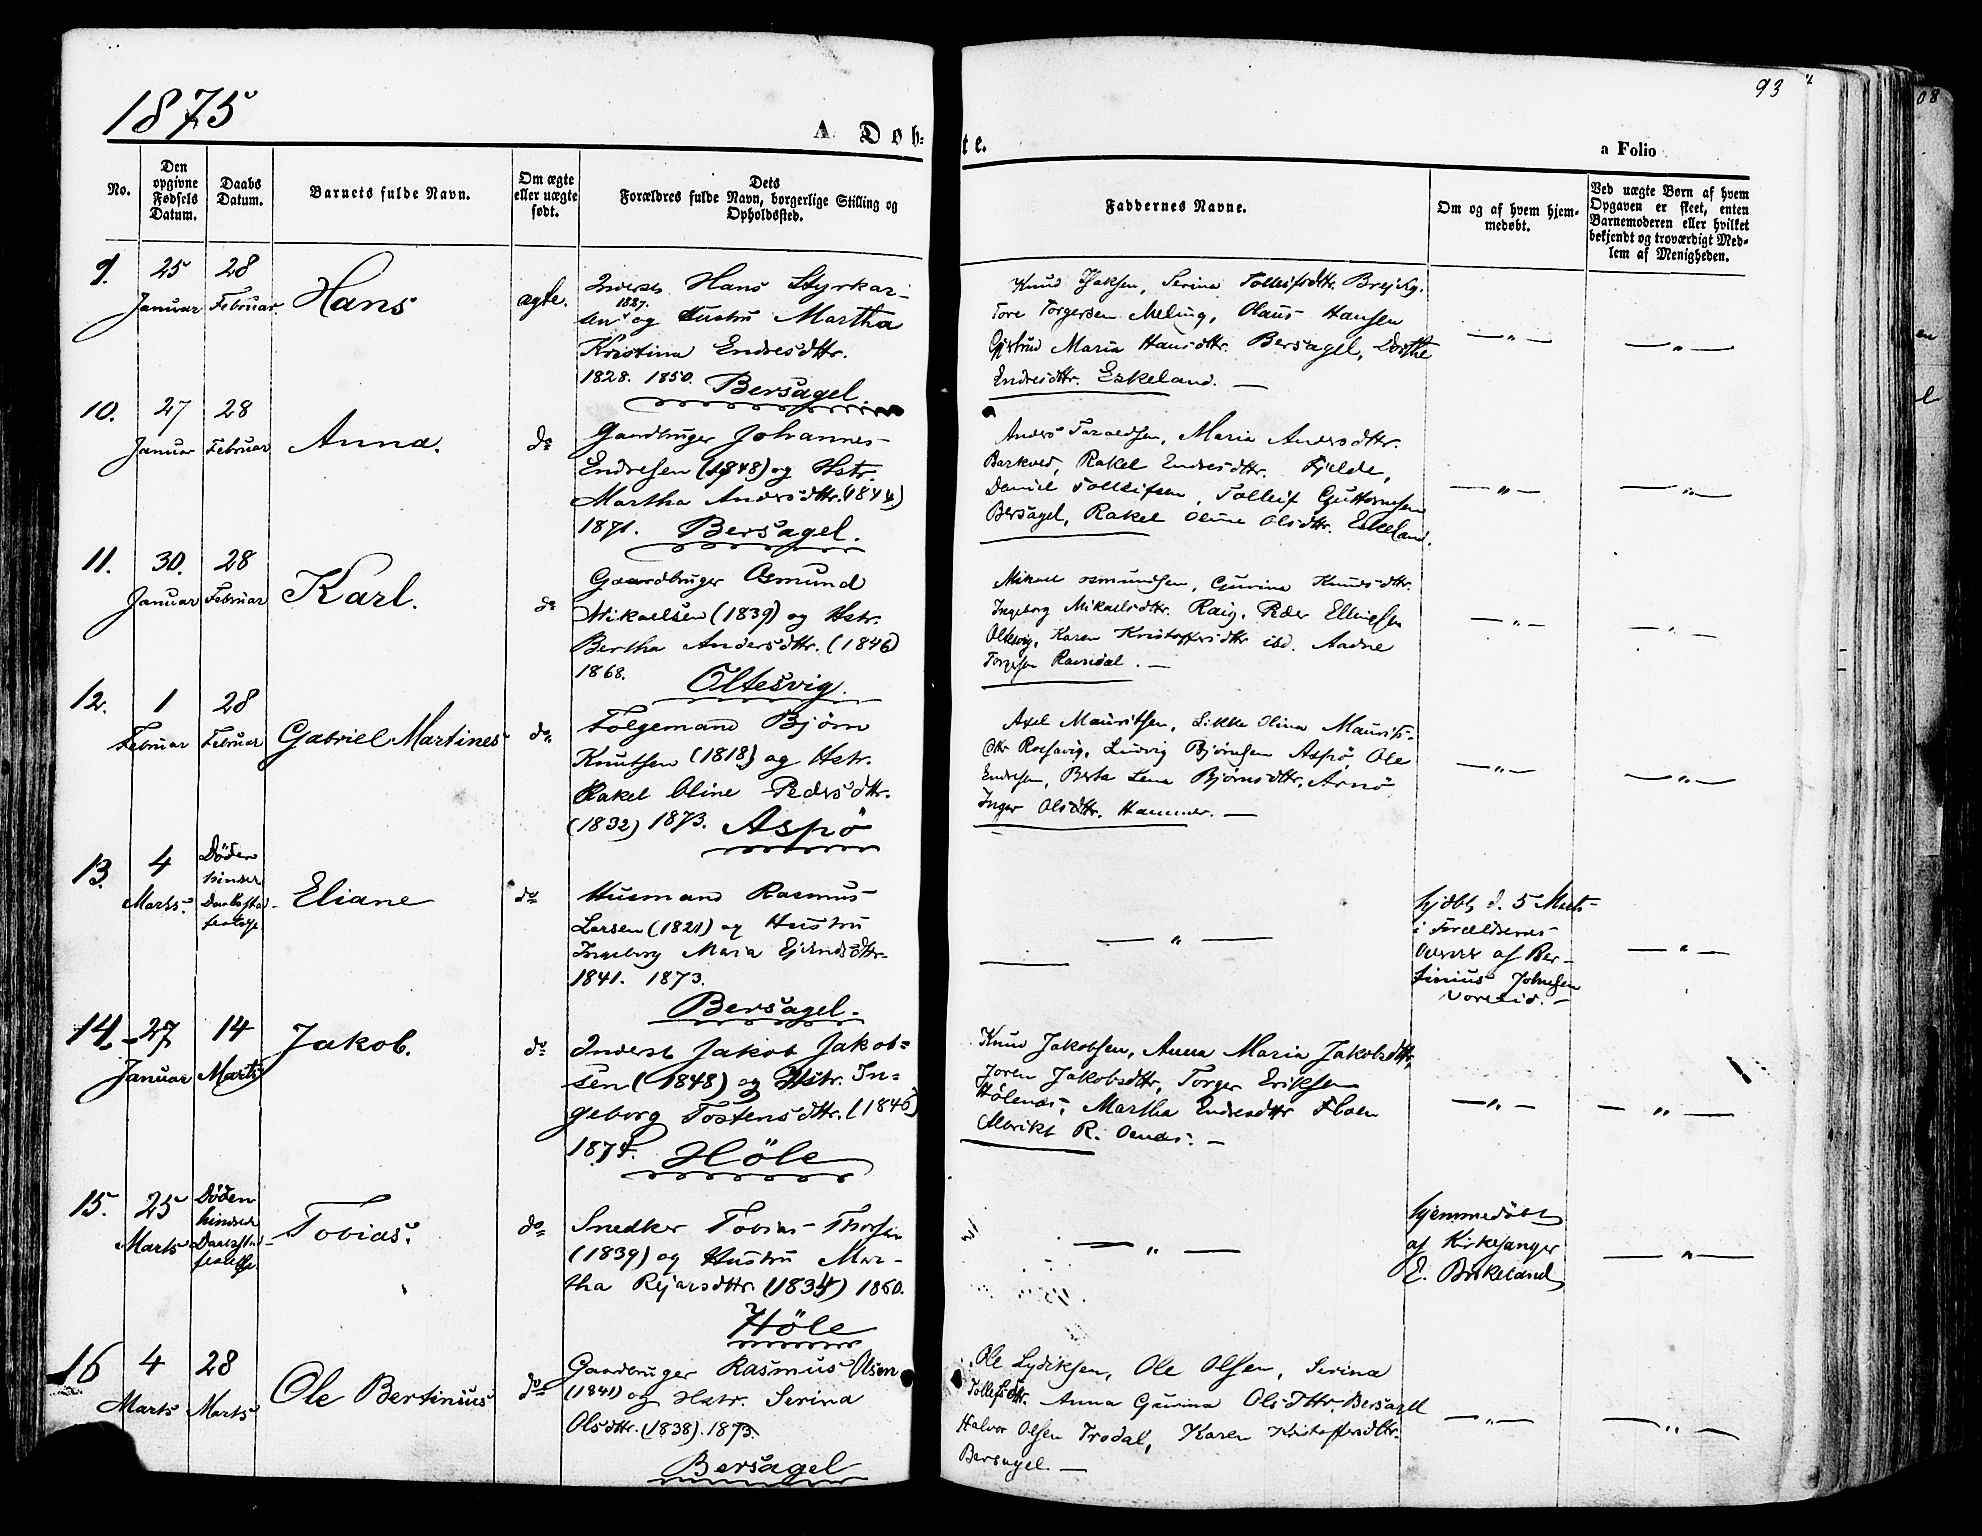 1875
93
A. Døb=
te.
a Folio
No.
Den opgivne Fødsels Datum.
Daabs Datum.
Barnets fulde Navn.
Om ægte eller uægte født.
Dets Forældres fulde Navn, borgerlige Stilling og Opholdssted.
Faddernes Navne.
Om og af hvem hjemmedøbt.
Ved uægte Børn af hvem Opgaven er skeet, enten Barnemoderen eller hvilket bekjendt og troværdigt Medlem af Menigheden.
9. 25 Januar 28 Februar Hans ægte.
Inderst Hans Styrkar-
sen 1827. og Hustru Martha
Kristina Endresdttr.
1828. 1850. Bersagel.
Knud Serina Tollefsdttr.
Tore Torgersen Meling, Olaus Hansen
Gjertrud Maria Hansdttr. Bersagel, Dorthe
Endresdttr. Eskeland. —
— " — — " —
10. 27 Januar 28 Februar Anna. do
Gaardbruger Johannes
Endresen (1848) og Hstr.
Martha Andersdttr. (1844)
1871. Bersagel.
Anders Taraldsen, Maria Andersdttr.
Barkved, Rakel Endresdttr. Fjelde,
Daniel Tollefsen, Tollef Guttormsen
Bersagel, Rakel Oline Olsdttr. Eskeland.
— " — — " —
11. 30. Januar 28 Februar Karl. do
Gaardbruger Osmund
Mikaelsen (1839) og Hstr.
Bertha Andersdttr. (1846)
1868. Oltesvig.
Mikael Osmundsen, Gurina Knudsdttr.
Ingeborg Mikaelsdttr. Raig, Peder Ellingsen
Oltesvig, Karen Kristoffersdttr ibd. Aadne
Torgersen Ramsdal. —
— " — — " —
12. 1 Februar 28 Februar Gabriel Martines do
Folgemand Bjørn
Knutsen (1818) og Hstr.
Rakel Oline Pedersdttr.
(1832) 1873. Aspø
Axel Mauritsen, Sikke Olina Maurits-
dttr Rossavig, Ludvig Bjørnsen Aspø, Ole
Endresen, Berta Lena Bjørnsdttr. Arnø
Inger Olsdttr. Hammer. —
— " — — " —
13. 4 Marts. Døden
hindret
Daabsstad-
festelse
Eliane do
Husmand Rasmus
Larsen (1821) og Hustru
Ingeborg Maria Ejvindsdttr.
1841. 1873.
Bersagel.
— " —
hjdbt d. 5 Marts
i Forældrenes
af Ber-
tinius Johnsen
— " —
14. 27 Januar 14 Marts Jakob. do
Inderst Jakob Jakob-
sen (1848) og Hstr. In-
geborg Tostensdttr. (1846)
1874. Høle
Knud Jakobsen, Anna Maria Jakobsdttr,
Joren Jakobsdttr, Torger Eriksen
Hølenes, Martha Endresdttr Floen
R. —
— " — — " —
15. 25 Marts Døden
hindret
Daabsstad-
festelse.
Tobias. do
Snedker Tobias Thorsen
(1839) og Hustru Mar-
tha Rejarsdttr. (1834) 1860.
Høle
— " —
hjemmedøbt
af Kirkesanger
E. Birkeland
— " —
16 4 Marts 28 Marts Ole Bertinius do
Gaardbruger Rasmus Olsen
(1841) og Hstr. Serina
Olsdttr. (1838). 1873.
Bersagel
Ole Lydiksen, Ole Olsen, Serina
Tollefsdttr. Anna Gurina Olsdttr. Bersagel
Halvor Olsen Trodal, Karen Kristoffersdttr.
Bersagel. —
— " — — " —